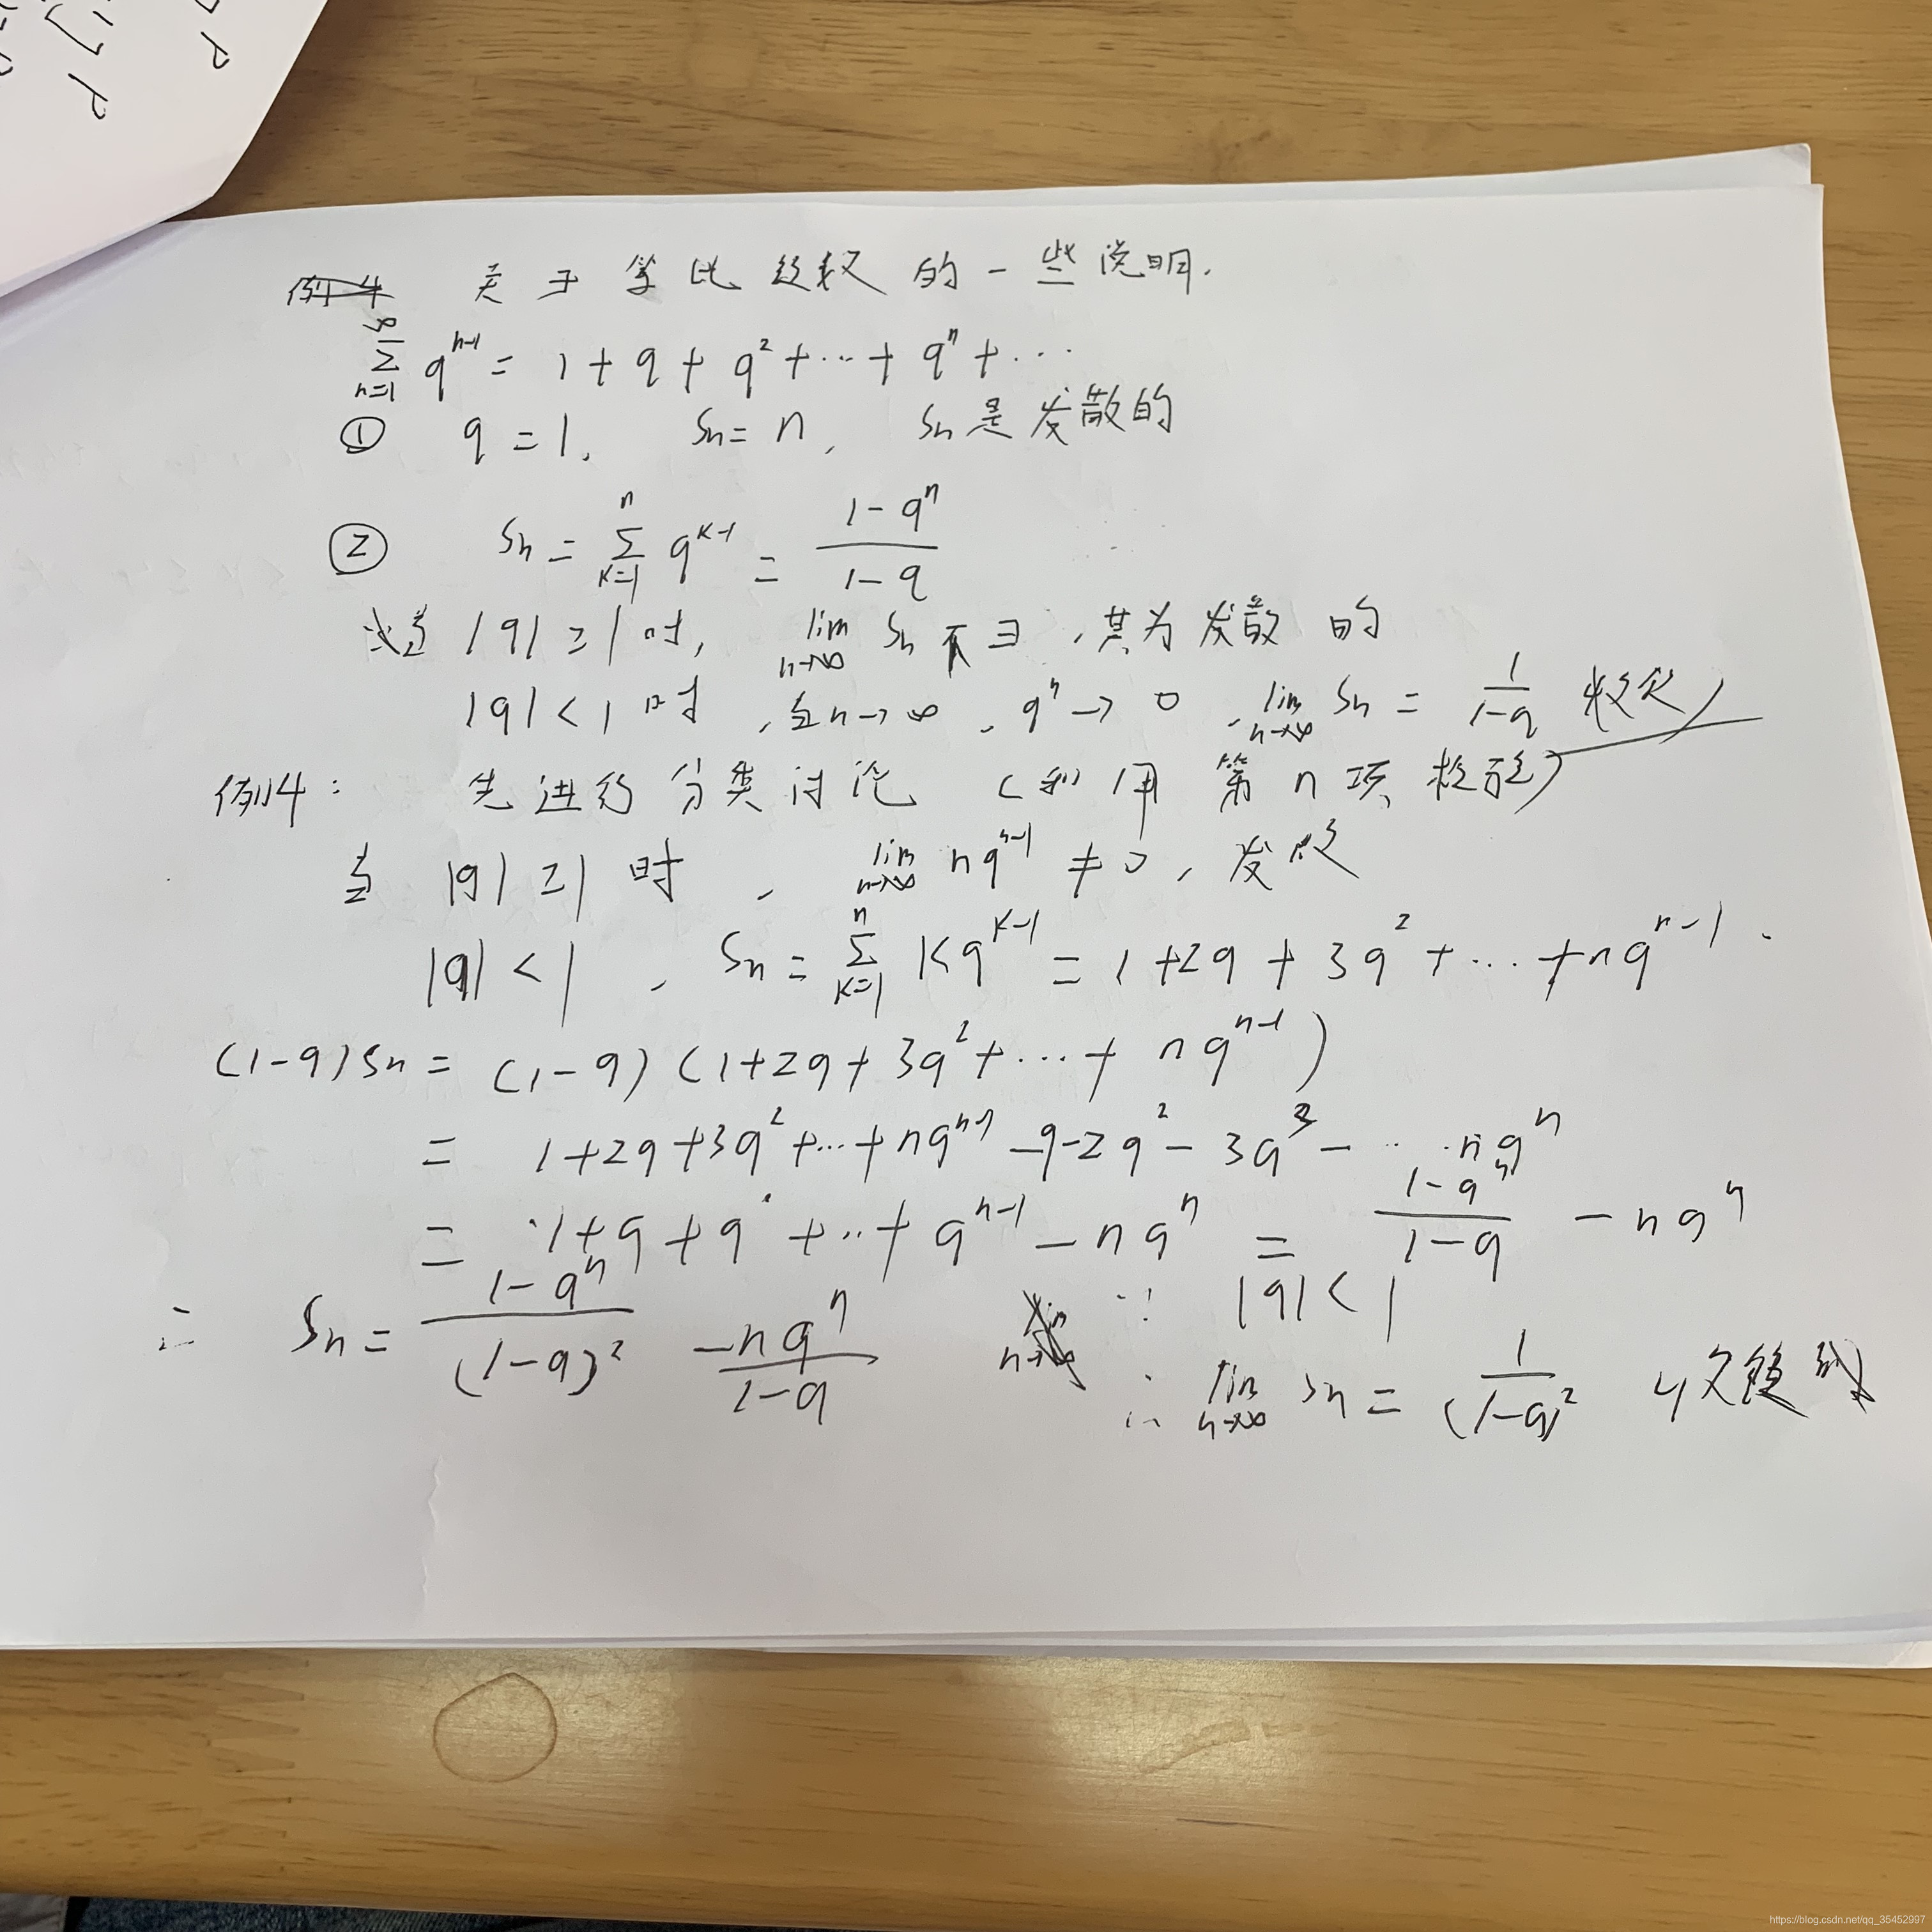 例4 关于等比级数的一些说明.
∑_{n=1}^{∞} q^{n-1} = 1 + q + q^2 + ... + q^n + ...
① q = 1, Sn = n, Sn是发散的
② Sn = ∑_{k=1}^{n} q^{k-1} = (1-q^n)/(1-q)
当 |q| ≥ 1 时, lim_{n→∞} Sn 不∃, 其为发散的
|q| < 1 时, 当n→∞, q^n → 0, lim_{n→∞} Sn = 1/(1-q) 收敛
例4: 先进行分类讨论 (利用第n项检验)
当 |q| ≥ 1 时, lim_{n→∞} nq^{n-1} ≠ 0, 发散
|q| < 1, Sn = ∑_{k=1}^{n} kq^{k-1} = 1 + 2q + 3q^2 + ... + nq^{n-1}.
(1-q)Sn = (1-q)(1+2q+3q^2+...+nq^{n-1})
= 1+2q+3q^2+...+nq^{n-1} -q-2q^2-3q^3-... -nq^n
= 1+q+q^2+...+q^{n-1} - nq^n = (1-q^n)/(1-q) - nq^n
∴ Sn = (1-q^n)/(1-q)^2 -nq^n/(1-q) ∵ |q| < 1
∴ lim_{n→∞} Sn = 1/(1-q)^2 收敛到
https://blog.csdn.net/qq_35452997